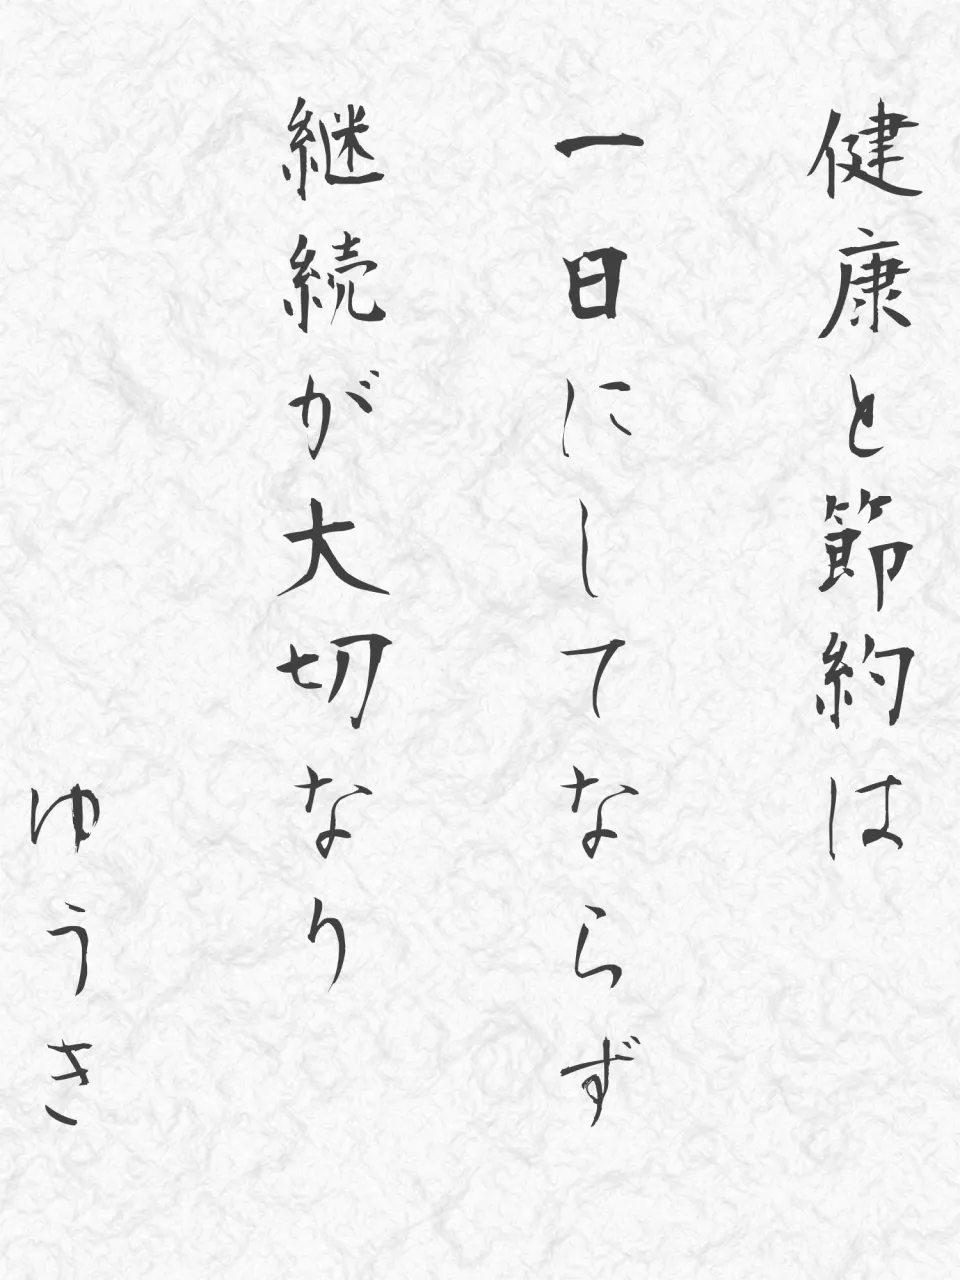 健康と節約は
一日にしてならず
継続が大切なり
ゆうき